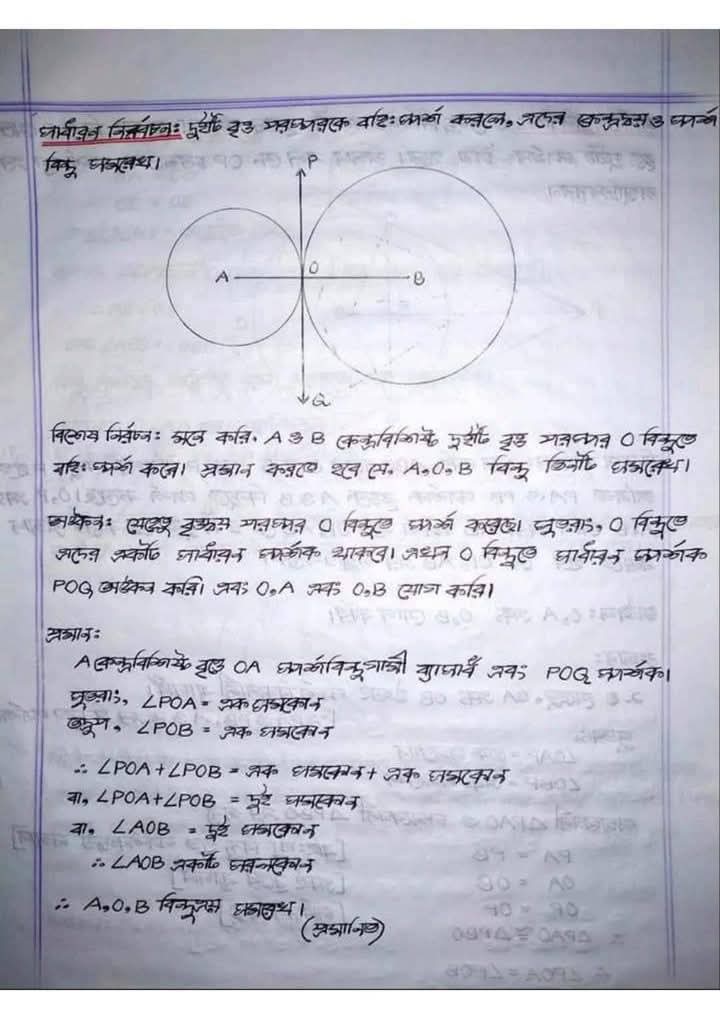 সাধারন নির্বচন: দুইটি বৃত্ত পরস্পরকে বহিঃস্পর্শ করলে, এদের কেন্দ্রদ্বয় ও স্পর্শ
বিন্দু সমরেখ।
P
O
A
B
Q
বিশেষ নির্বচন: মনে করি, A ও B কেন্দ্রবিশিষ্ট দুইটি বৃত্ত পরস্পর O বিন্দুতে
বহিঃস্পর্শ করে। প্রমান করতে হবে যে, A,O,B বিন্দু তিনটি সমরেখ।
অঙ্কন: যেহেতু বৃত্তদ্বয় পরস্পর O বিন্দুতে স্পর্শ করেছে। সুতরাং, O বিন্দুতে
এদের একটি সাধারন স্পর্শক থাকবে। এখন O বিন্দুতে সাধারন স্পর্শক
POQ অঙ্কন করি। এবং O,A এবং O,B যোগ করি।
প্রমান:
A কেন্দ্রবিশিষ্ট বৃত্তে OA স্পর্শবিন্দুগামী ব্যাসার্ধ এবং POQ স্পর্শক।
সুতরাং, ∠POA = এক সমকোন
তদ্রুপ, ∠POB = এক সমকোন
∴ ∠POA+∠POB = এক সমকোন + এক সমকোন
বা, ∠POA+∠POB = দুই সমকোন
বা, ∠AOB = দুই সমকোন
∴ ∠AOB একটি সরলকোন
∴ A,O,B বিন্দুত্রয় সমরেখ।
(প্রমানিত)